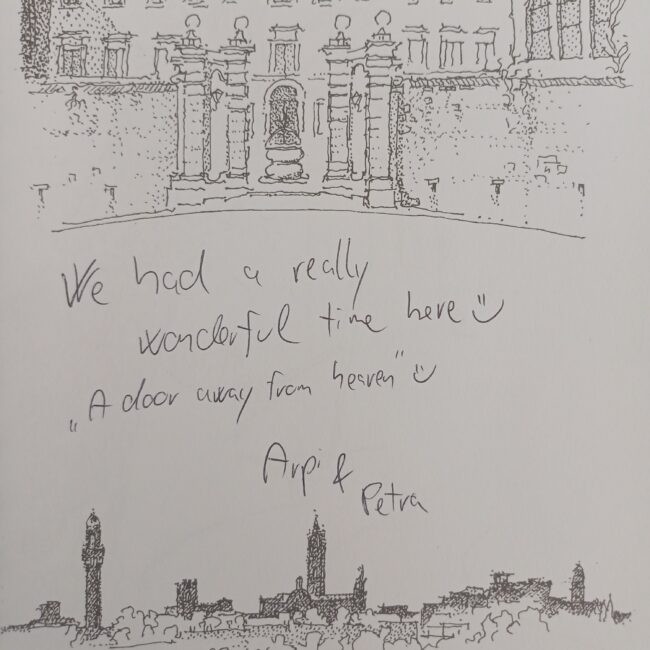 We had a really
wonderful time here :)
„A door away from heaven" :)
Arpi &
Petra